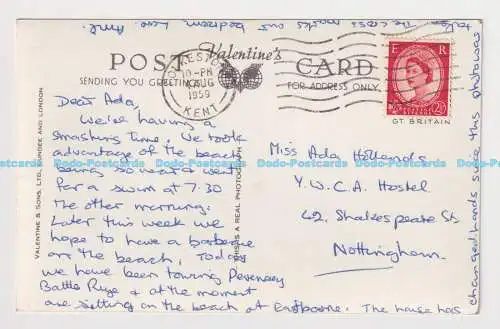 POST Valentine's CARD
SENDING YOU GREETINGS
FOR ADDRESS ONLY
10-PM
AUG
1959
KENT
E R
2½
GT. BRITAIN
VALENTINE & SONS, LTD., DUNDEE AND LONDON
THIS IS A REAL PHOTOGRAPH
Dear Ada,
We're having a
smashing time. We took
advantage of the beach
being so near & went
for a swim at 7.30
the other morning.
Later this week we
hope to have a barbecue
on the beach. Today
we have been touring Pevensey
Battle Rye & at the moment
are sitting on the beach at Eastbourne. The house has
changed hands since this photo was
taken. The cross marks our bedroom. Love.
Miss Ada Hollands
Y.W.C.A Hostel
42, Shakespeare St,
Nottingham.
Dodo-Postcards Dodo-Postcards Dodo-Postcards Dodo-Postcards Dodo-Postcards